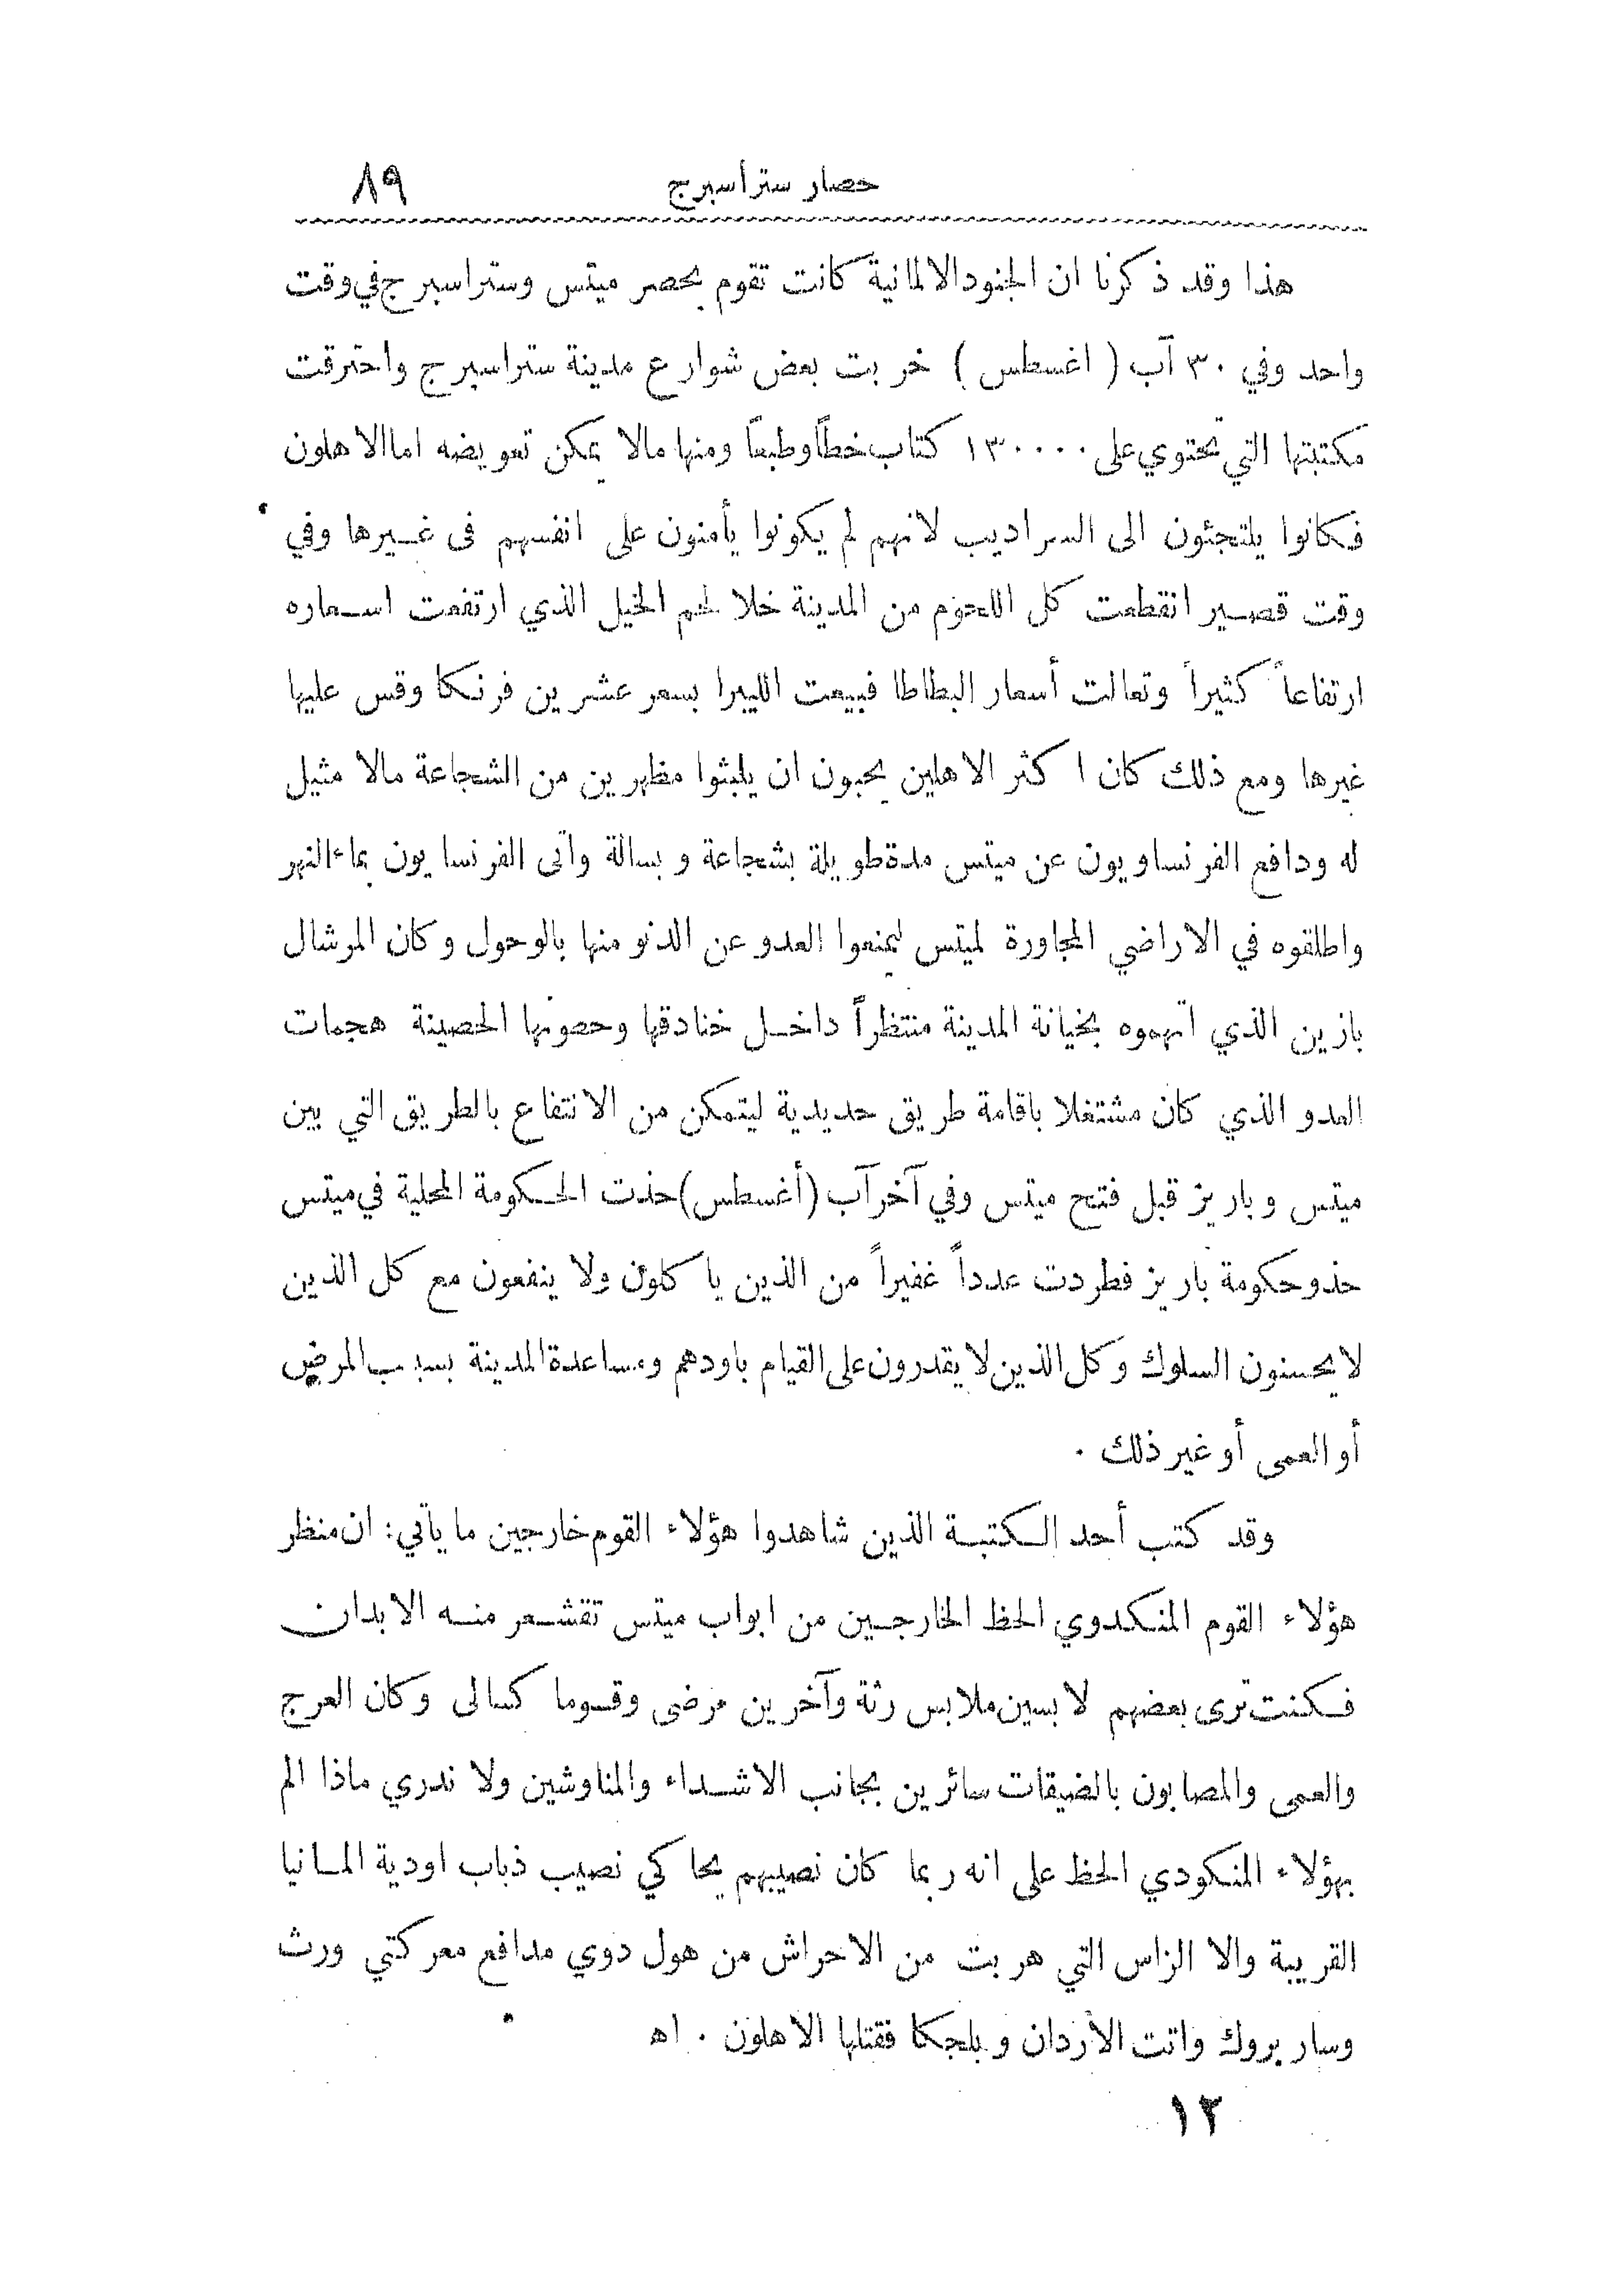 حصار ستراسبرج ٨٩
هذا وقد ذكرنا ان الجنود الالمانية كانت تقوم بحصر ميتس وستراسبرج في وقت
واحد وفي ٣٠ آب ( اغسطس ) خربت بعض شوارع مدينة ستراسبرج واحترقت
مكتبتها التي تحتوي على ١٣٠٠٠٠ كتاب خطاً وطبعاً ومنها مالا يمكن تعويضه اما الاهلون
فكانوا يلتجئون الى السراديب لانهم لم يكونوا يأمنون على انفسهم فى غيرها وفي
وقت قصير انقطعت كل اللحوم من المدينة خلا لحم الخيل الذي ارتفعت اسعاره
ارتفاعاً كثيراً وتعالت أسعار البطاطا فبيعت الليبرا بسعر عشرين فرنكا وقس عليها
غيرها ومع ذلك كان اكثر الاهلين يحبون ان يلبثوا مظهرين من الشجاعة مالا مثيل
له ودافع الفرنساويون عن ميتس مدة طويلة بشجاعة وبسالة وأتى الفرنسايون بماء النهر
واطلقوه في الاراضي المجاورة لميتس ليمنعوا العدو عن الدنو منها بالوحول وكان المرشال
بازين الذي اتهموه بخيانة المدينة منتظراً داخل خنادقها وحصونها الحصينة هجمات
العدو الذي كان مشتغلا باقامة طريق حديدية ليتمكن من الانتفاع بالطريق التي بين
ميتس وباريز قبل فتح ميتس وفي آخر آب (أغسطس) حذت الحكومة المحلية في ميتس
حذو حكومة باريز فطردت عدداً غفيراً من الذين ياكلون ولا ينفعون مع كل الذين
لا يحسنون السلوك وكل الذين لا يقدرون على القيام باودهم ومساعدة المدينة بسبب المرض
أو العمى أو غير ذلك .
وقد كتب أحد الكتبة الذين شاهدوا هؤلاء القوم خارجين ما يأتي : ان منظر
هؤلاء القوم المنكدوي الحظ الخارجين من ابواب ميتس تقشعر منه الابدان
فكنت ترى بعضهم لابسين ملابس رثة وآخرين مرضى وقوما كسالى وكان العرج
والعمى والمصابون بالضيقات سائرين بجانب الاشداء والمناوشين ولا ندري ماذا الم
بهؤلاء المنكودي الحظ على انه ربما كان نصيبهم يحاكي نصيب ذباب اودية المانيا
القريبة والا الزاس التي هربت من الاحراش من هول دوي مدافع معركتي ورث
وسار بروك واتت الأردان وبلجكا فقتلها الاهلون . اه
١٢